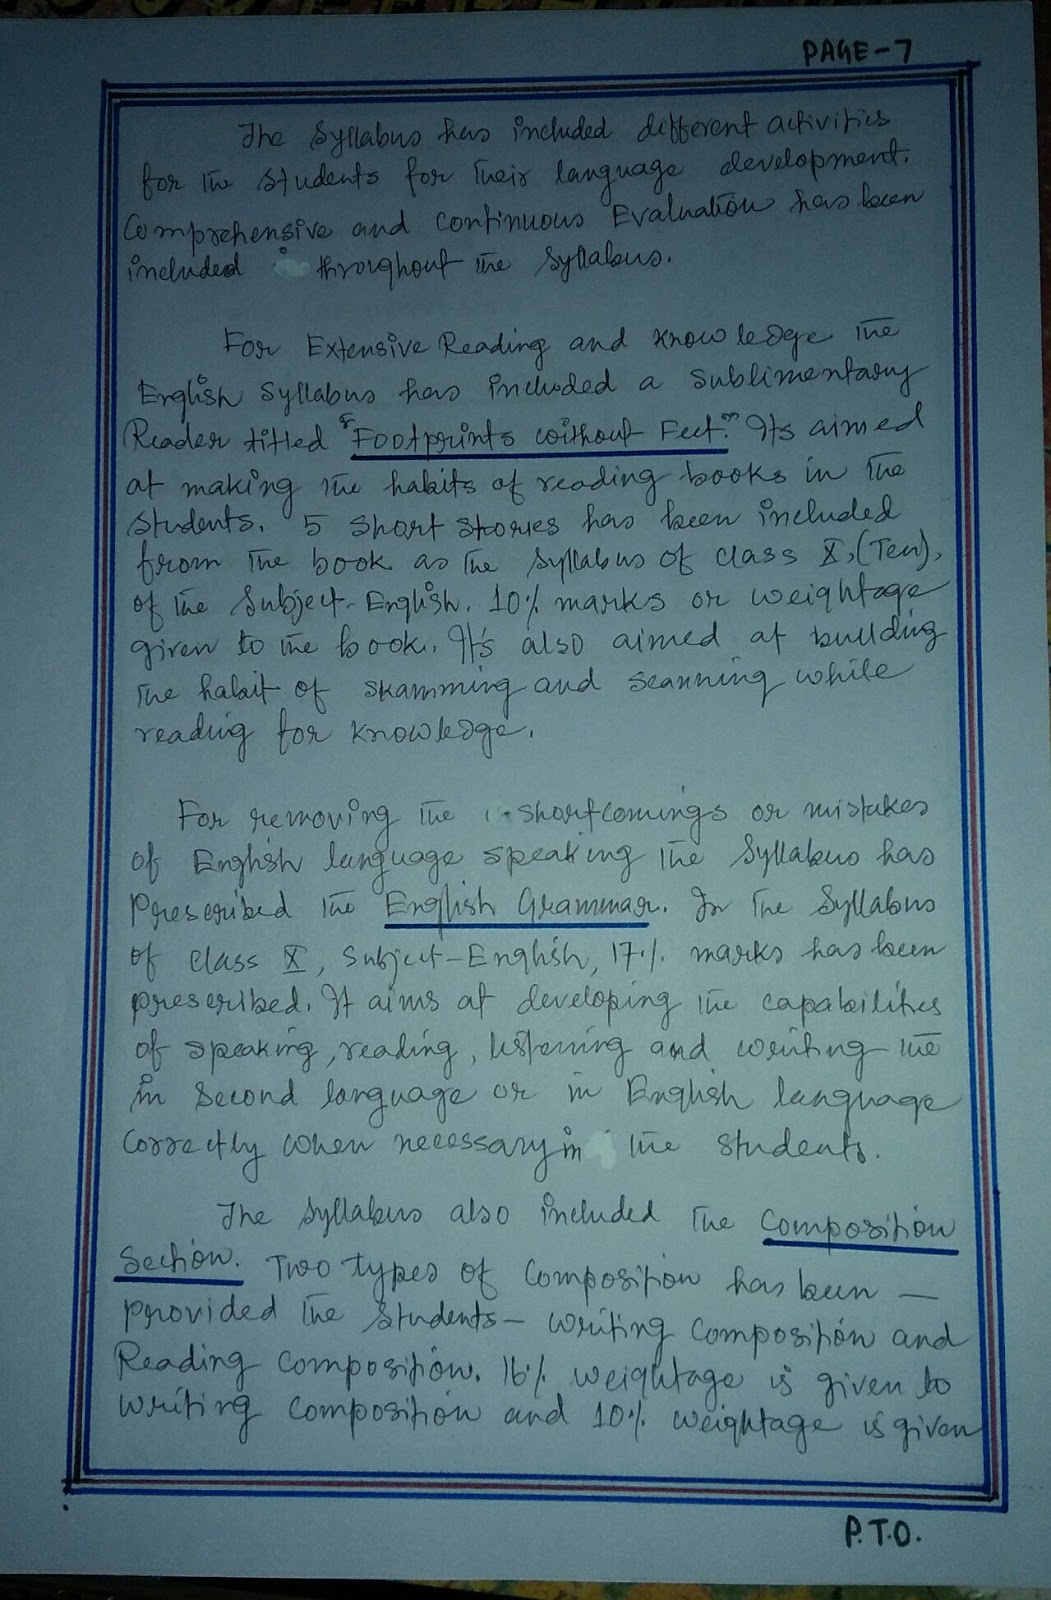 PAGE-7
The Syllabus has included different activities
for the students for their language development.
Comprehensive and continuous Evaluation has been
included throughout the Syllabus.
For Extensive Reading and knowledge the
English Syllabus has included a sublimentary
Reader titled "Footprints without Feet." Its aimed
at making the habits of reading books in the
students. 5 short stories has been included
from the book as the Syllabus of class X, (Ten),
of the Subject-English. 10% marks or weightage
given to the book. It's also aimed at building
the habit of skamming and scanning while
reading for knowledge.
For removing the shortcomings or mistakes
of English language speaking the Syllabus has
Prescribed the English Grammar. In the Syllabus
of class X, Subject-English, 17% marks has been
prescribed. It aims at developing the capabilities
of speaking, reading, listening and writing the
in second language or in English language
correctly when necessary in the students.
The Syllabus also included the Composition
Section. Two types of Composition has been —
provided the students - writing composition and
Reading composition. 16% weightage is given to
writing composition and 10% weightage is given
P.T.O.